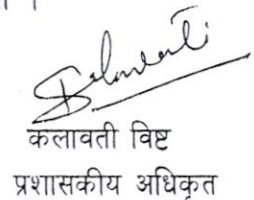 कलावती विष्ट
प्रशासकीय अधिकृत